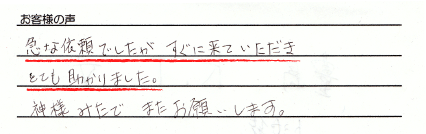 お客様の声
急な依頼でしたが すぐに来ていただき
とても助かりました。
神様みたで またお願いします。